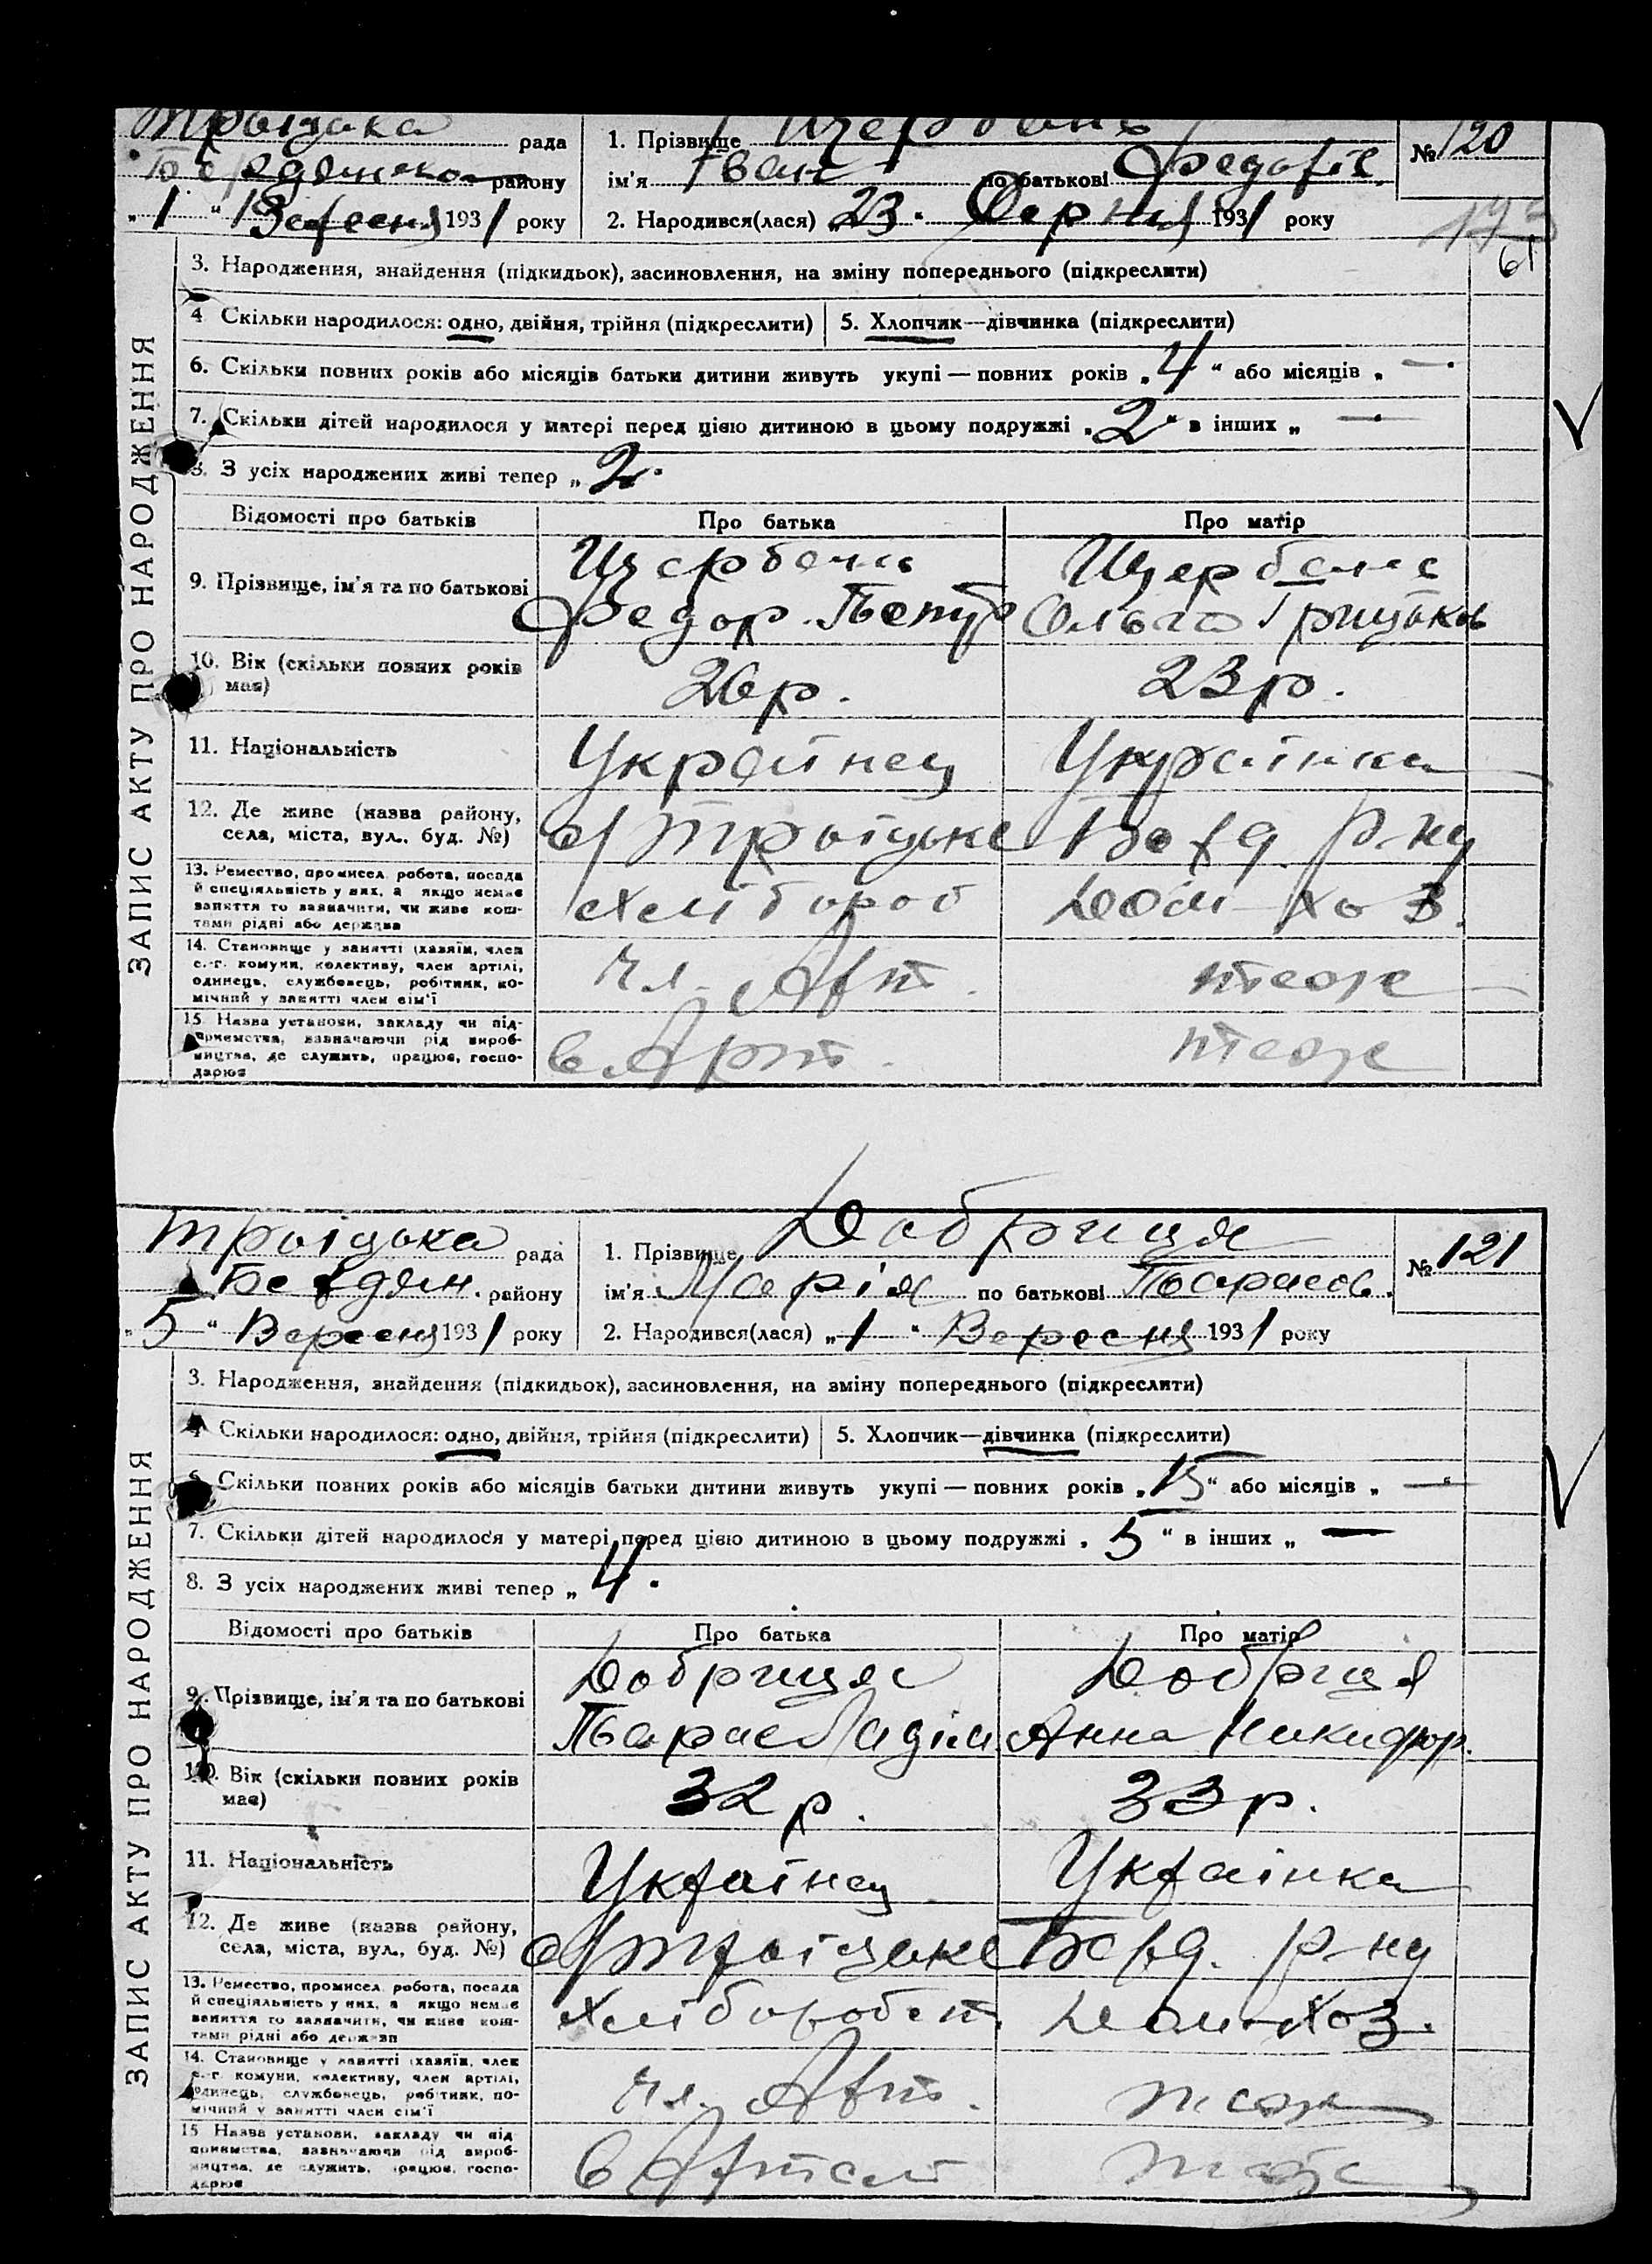 Троіцька рада
Бердянськ району
„1“ Вересня 1931 року
1. Прізвище Щербань
ім'я Іван по батькові Федорів
2. Народився(лася) „23“ Серпня 1931 року
№ 120
61
ЗАПИС АКТУ ПРО НАРОДЖЕННЯ
3. Народження, знайдення (підкидьок), засиновлення, на зміну попереднього (підкреслити)
4. Скільки народилося: одно, двійня, трійня (підкреслити) 5. Хлопчик—дівчинка (підкреслити)
6. Скільки повних років або місяців батьки дитини живуть укупі — повних років „4“ або місяців „—“
7. Скільки дітей народилося у матері перед цією дитиною в цьому подружжі „2“ в інших „—“
8. З усіх народжених живі тепер „2“
Відомості про батьків Про батька Про матір
9. Прізвище, ім'я та по батькові
Щербань Щербань
Федор. Петр Ольга Грицьков
10. Вік (скільки повних років має) 26 р. 23 р.
11. Національність Украйнец Украінка
12. Де живе (назва району,
села, міста, вул., буд. №) с/Троіцьке Берд. р-ну
13. Ремество, промисел, робота, посада
й спеціяльність у них, а якщо немає
заняття то зазначити, чи живе кош-
тами рідні або держава
Хлібороб Дом-хоз.
14. Становище у занятті (хазяїн, член
с.-г. комуни, колективу, член артілі,
одинець, службовець, робітник, по-
мічний у занятті член сім'ї
чл. Арт. тоже
15. Назва установи, закладу чи під-
приємства, зазначаючи рід вироб-
ництва, де служить, працює, госпо-
дарює
в Арт. тоже
Троіцька рада
Бердян. району
„5“ Вересня 1931 року
1. Прізвище Добриця
ім'я Марія по батькові Тарасов.
2. Народився(лася) „1“ Вересня 1931 року
№ 121
ЗАПИС АКТУ ПРО НАРОДЖЕННЯ
3. Народження, знайдення (підкидьок), засиновлення, на зміну попереднього (підкреслити)
4. Скільки народилося: одно, двійня, трійня (підкреслити) 5. Хлопчик—дівчинка (підкреслити)
6. Скільки повних років або місяців батьки дитини живуть укупі — повних років „15“ або місяців „—“
7. Скільки дітей народилося у матері перед цією дитиною в цьому подружжі „5“ в інших „—
8. З усіх народжених живі тепер „4“
Відомості про батьків Про батька Про матір
9. Прізвище, ім'я та по батькові
Добриця Добриця
Тарас Анна Никифор.
10. Вік (скільки повних років має) 32 р. 33 р.
11. Національність Украінец Украінка
12. Де живе (назва району,
села, міста, вул., буд. №) с/Троіцьке Берд. р-ну
13. Ремество, промисел, робота, посада
й спеціяльність у них, а якщо немає
заняття то зазначити, чи живе кош-
тами рідні або держави
Хлібороб Дом-хоз.
14. Становище у занятті (хазяїн, член
с.-г. комуни, колективу, член артілі,
одинець, службовець, робітник, по-
мічний у занятті член сім'ї
чл. Арт. тоже
15. Назва установи, закладу чи під
приємства, зазначаючи рід вироб-
ництва, де служить, працює, госпо-
дарює
в Артел тоже